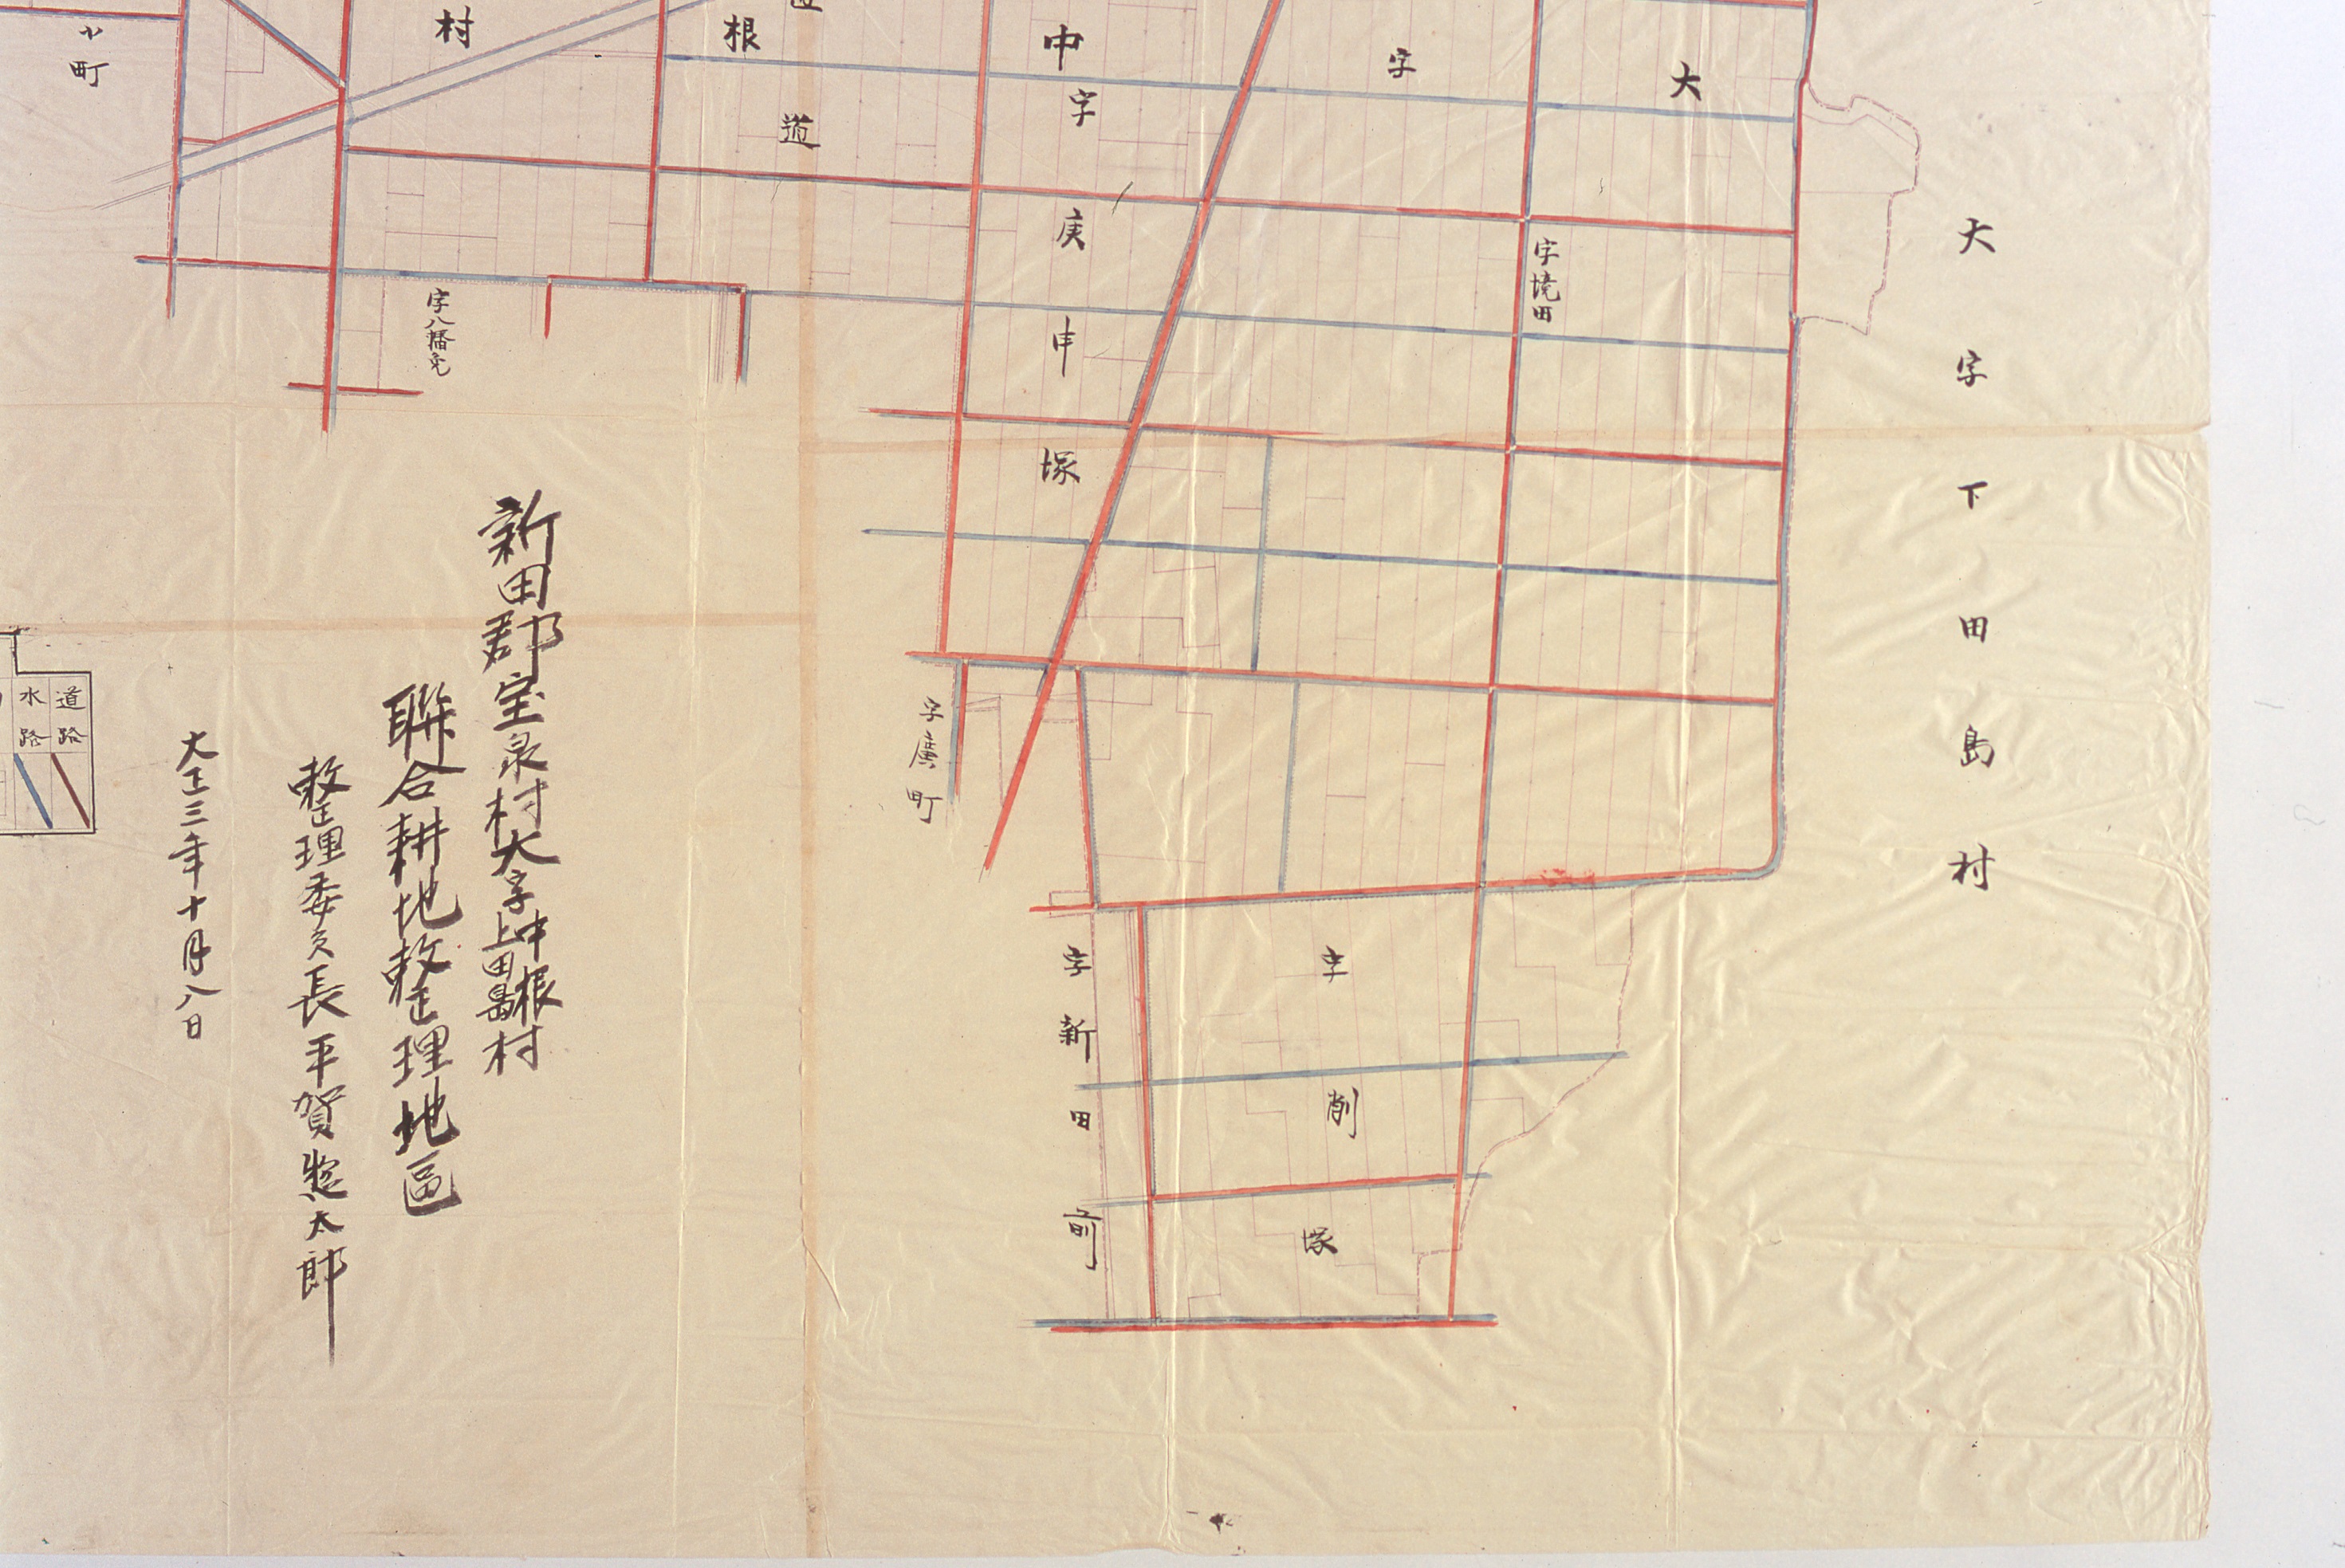 大字下田島村
大字中根村
字境田
字庚申塚
道
小町
字八幡免
字廣町
字削塚
字新田前
新田郡宝泉村大字中根上田島村
聯合耕地整理地區
整理委員長平賀惣太郎
大正三年十月八日
道路
水路